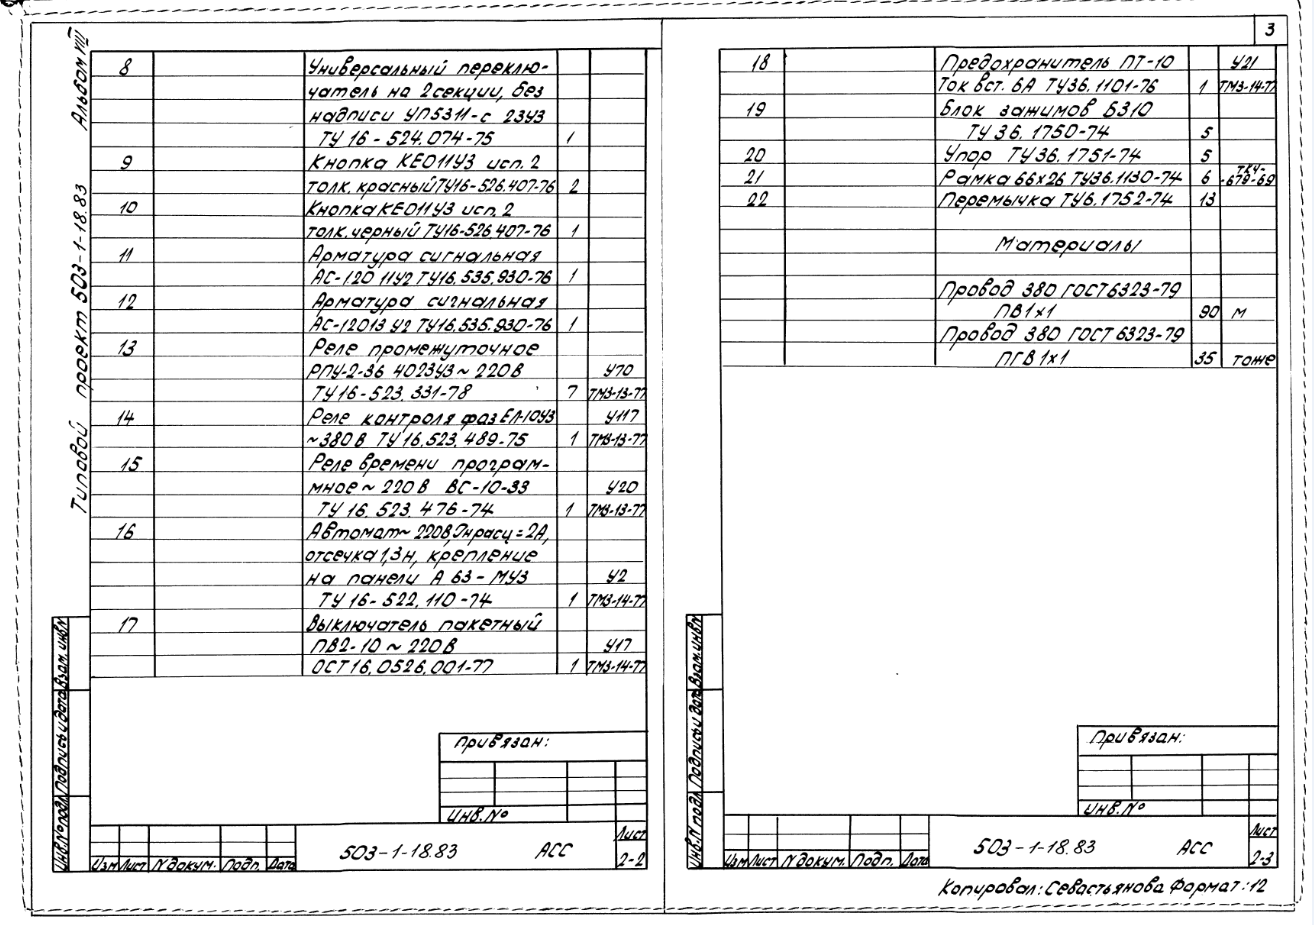 3
Альбом VIII
Типовой проект 503-1-18.83
8 Универсальный переклю-
чатель на 2 секции, без
надписи УП5311-с 23У3
ТУ 16-524.074-75 1
9 Кнопка КЕ011У3 исп. 2
толк. красный ТУ16-526.407-76 2
10 Кнопка КЕ011У3 исп. 2
толк. черный ТУ16-526.407-76 1
11 Арматура сигнальная
АС-120 11У2 ТУ16.535.930-76 1
12 Арматура сигнальная
АС-12013 У2 ТУ16.535.930-76 1
13 Реле промежуточное
РПУ-2-36 4023У3 ~ 220В У70
ТУ 16-523.331-78 7 ТМ3-13-77
14 Реле контроля фаз ЕЛ-10У3 У117
~380В ТУ 16.523.489-75 1 ТМ3-13-77
15 Реле времени програм-
мное ~ 220В ВС-10-33 У20
ТУ 16.523.476-74 1 ТМ3-13-77
16 Автомат ~ 220В, Iнрасц=2А,
отсечка 1,3н, крепление
на панели А 63-МУ3 У2
ТУ 16-522.110-74 1 ТМ3-14-77
17 Выключатель пакетный
ПВ2-10 ~ 220В У17
ОСТ 16.0526.001-77 1 ТМ3-14-77
Привязан:
Инв.№
Инв.№ подл. Подпись и дата Взам. инв.№
Изм Лист N докум. Подп. Дата
503-1-18.83 АСС
Лист
2-2
18 Предохранитель ПТ-10 У21
Ток вст. 6А ТУ36.1101-76 1 ТМ3-14-77
19 Блок зажимов Б310
ТУ 36.1750-74 5
20 Упор ТУ36.1751-74 5
21 Рамка 66х26 ТУ36.1130-74 6 ТК4-
-679-69
22 Перемычка ТУ6.1752-74 13
Материалы
Провод 380 ГОСТ 6323-79
ПВ 1х1 90 м
Провод 380 ГОСТ 6323-79
ПГВ 1х1 35 тоже
Привязан:
Инв.№
Инв.N подл. Подпись и дата Взам.инв№
Изм Лист N докум. Подп. Дата
503-1-18.83 АСС
Лист
2-3
Копировал: Севастьянова Формат: 12